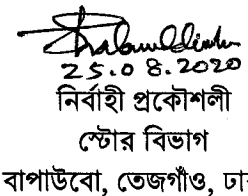 25.08.2020
নির্বাহী প্রকৌশলী
স্টোর বিভাগ
বাপাউবো, তেজগাঁও, ঢাকা